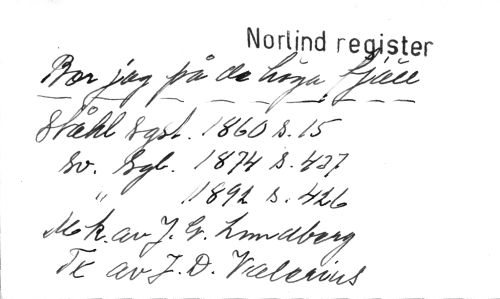 Norlind register
Bor jag på de höga fjäll
Ståhl Sgsb. 1860 s. 15
Sv. Sgb. 1874 s. 437
" 1892 s. 426
Mek. av J. G. Lundberg
Tx av J. D. Valerius